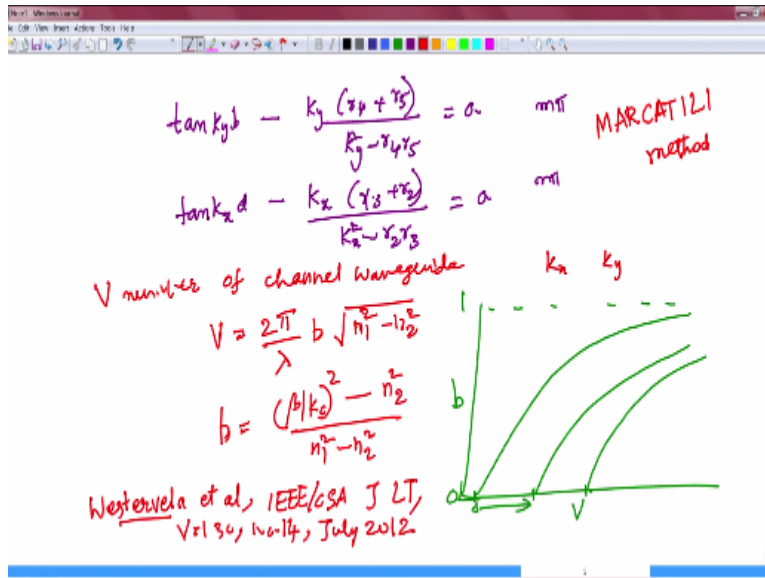 Note1 - Windows Journal
Edit View Insert Actions Tools Help
tan kyb - ky (γ4 + γ5) / ky² - γ4γ5 = 0 mπ
MARCATILI
method
tan kx d - kx (γ3 + γ2) / kx² - γ2γ3 = 0 nπ
V number of channel waveguide
kx ky
V = 2π/λ b √n1² - n2²
b = (β/k0)² - n2² / n1² - n2²
1
b
0
V
Westerveld et al, IEEE/OSA J LT,
Vol 30, No 14, July 2012